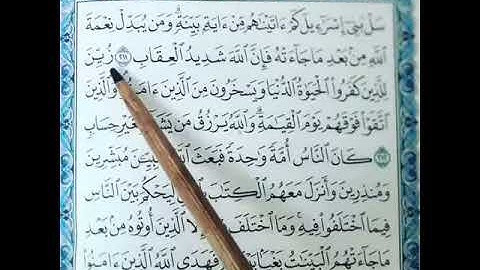 سَلْ بَنِىٓ إِسْرَٰٓءِيلَ كَمْ ءَاتَيْنَٰهُم مِّنْ ءَايَةٍۭ بَيِّنَةٍ ۗ وَمَن يُبَدِّلْ نِعْمَةَ
ٱللَّهِ مِنۢ بَعْدِ مَا جَآءَتْهُ فَإِنَّ ٱللَّهَ شَدِيدُ ٱلْعِقَابِ ٢١١ زُيِّنَ
لِلَّذِينَ كَفَرُوا۟ ٱلْحَيَوٰةُ ٱلدُّنْيَا وَيَسْخَرُونَ مِنَ ٱلَّذِينَ وَٱلَّذِينَ
ٱتَّقَوْا۟ فَوْقَهُمْ يَوْمَ ٱلْقِيَٰمَةِ ۗ وَٱللَّهُ يَرْزُقُ مَن حِسَابٍ
٢١٢ كَانَ ٱلنَّاسُ أُمَّةً وَٰحِدَةً فَبَعَثَ مُبَشِّرِينَ
وَمُنذِرِينَ وَأَنزَلَ مَعَهُمُ ٱلْكِتَٰبَ لِيَحْكُمَ بَيْنَ ٱلنَّاسِ
فِيمَا ٱخْتَلَفُوا۟ فِيهِ ۚ وَمَا ٱخْتَلَفَ ٱلَّذِينَ أُوتُوهُ مِنۢ بَعْدِ
مَا جَآءَتْهُمُ ٱلْبَيِّنَٰتُ فَهَدَى ٱللَّهُ ٱلَّذِينَ ءَامَنُوا۟